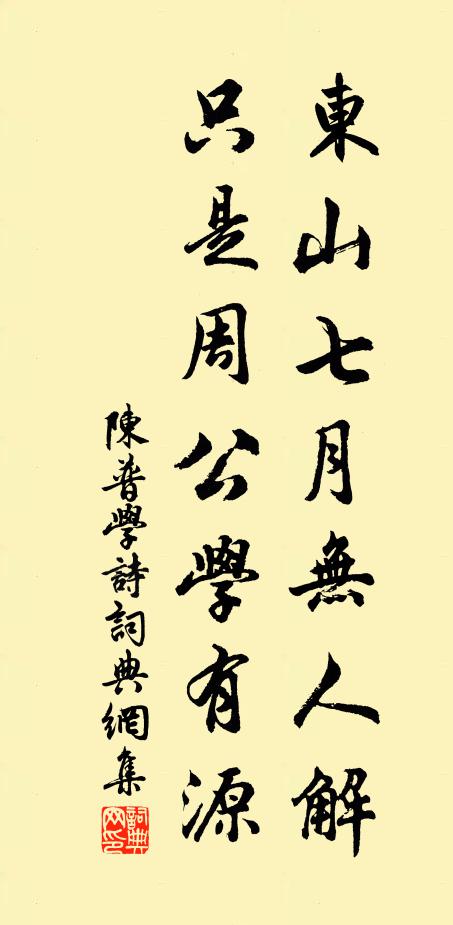 東山七月無人解
只是周公學有源
陳普學詩詞典網集
詞典網印